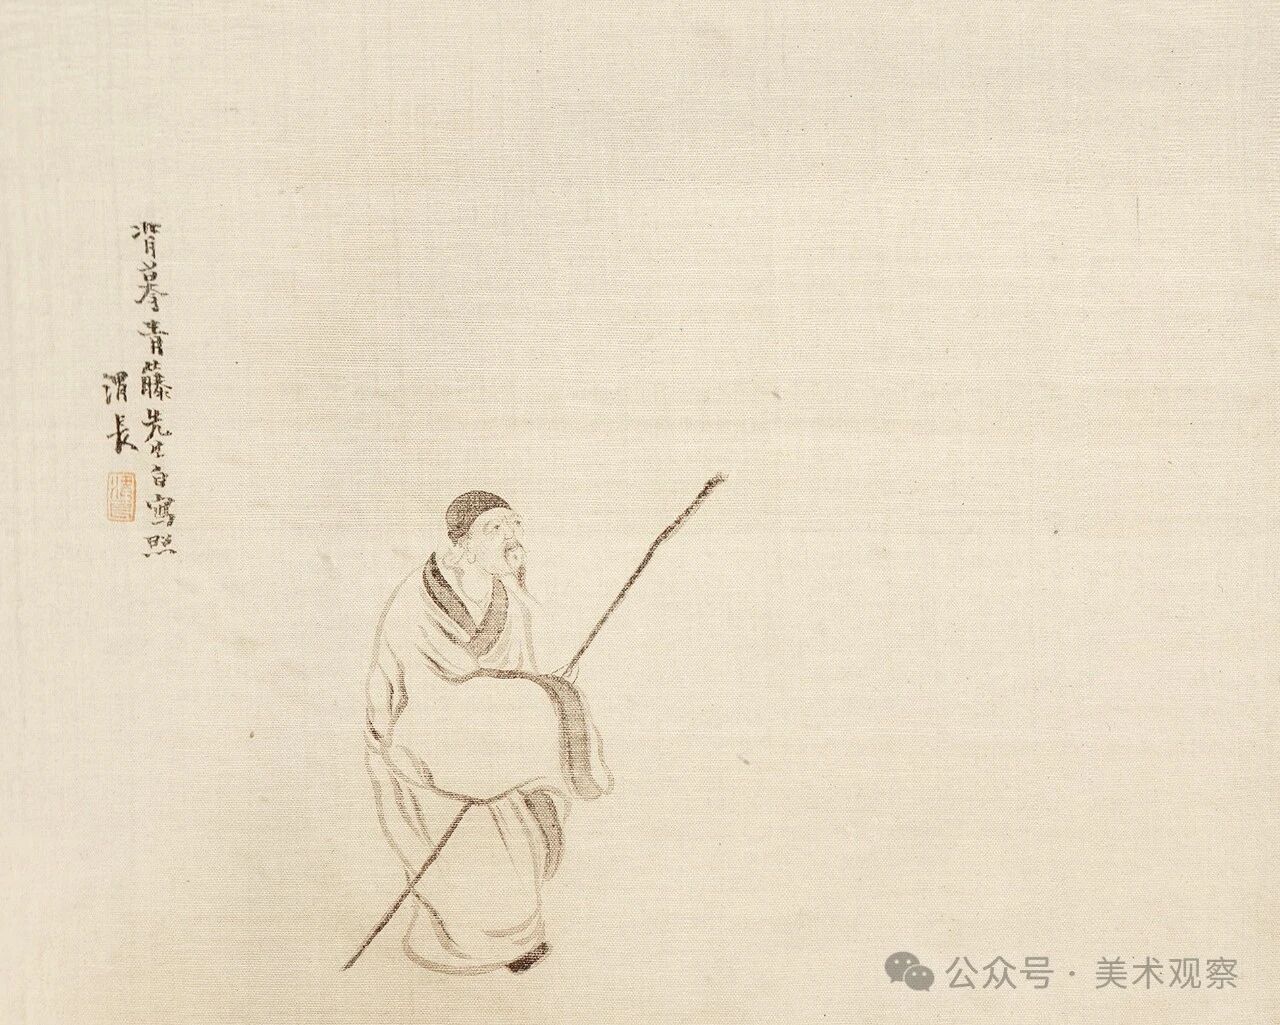 背摹青藤先生自寫照
渭長
公众号 · 美术观察